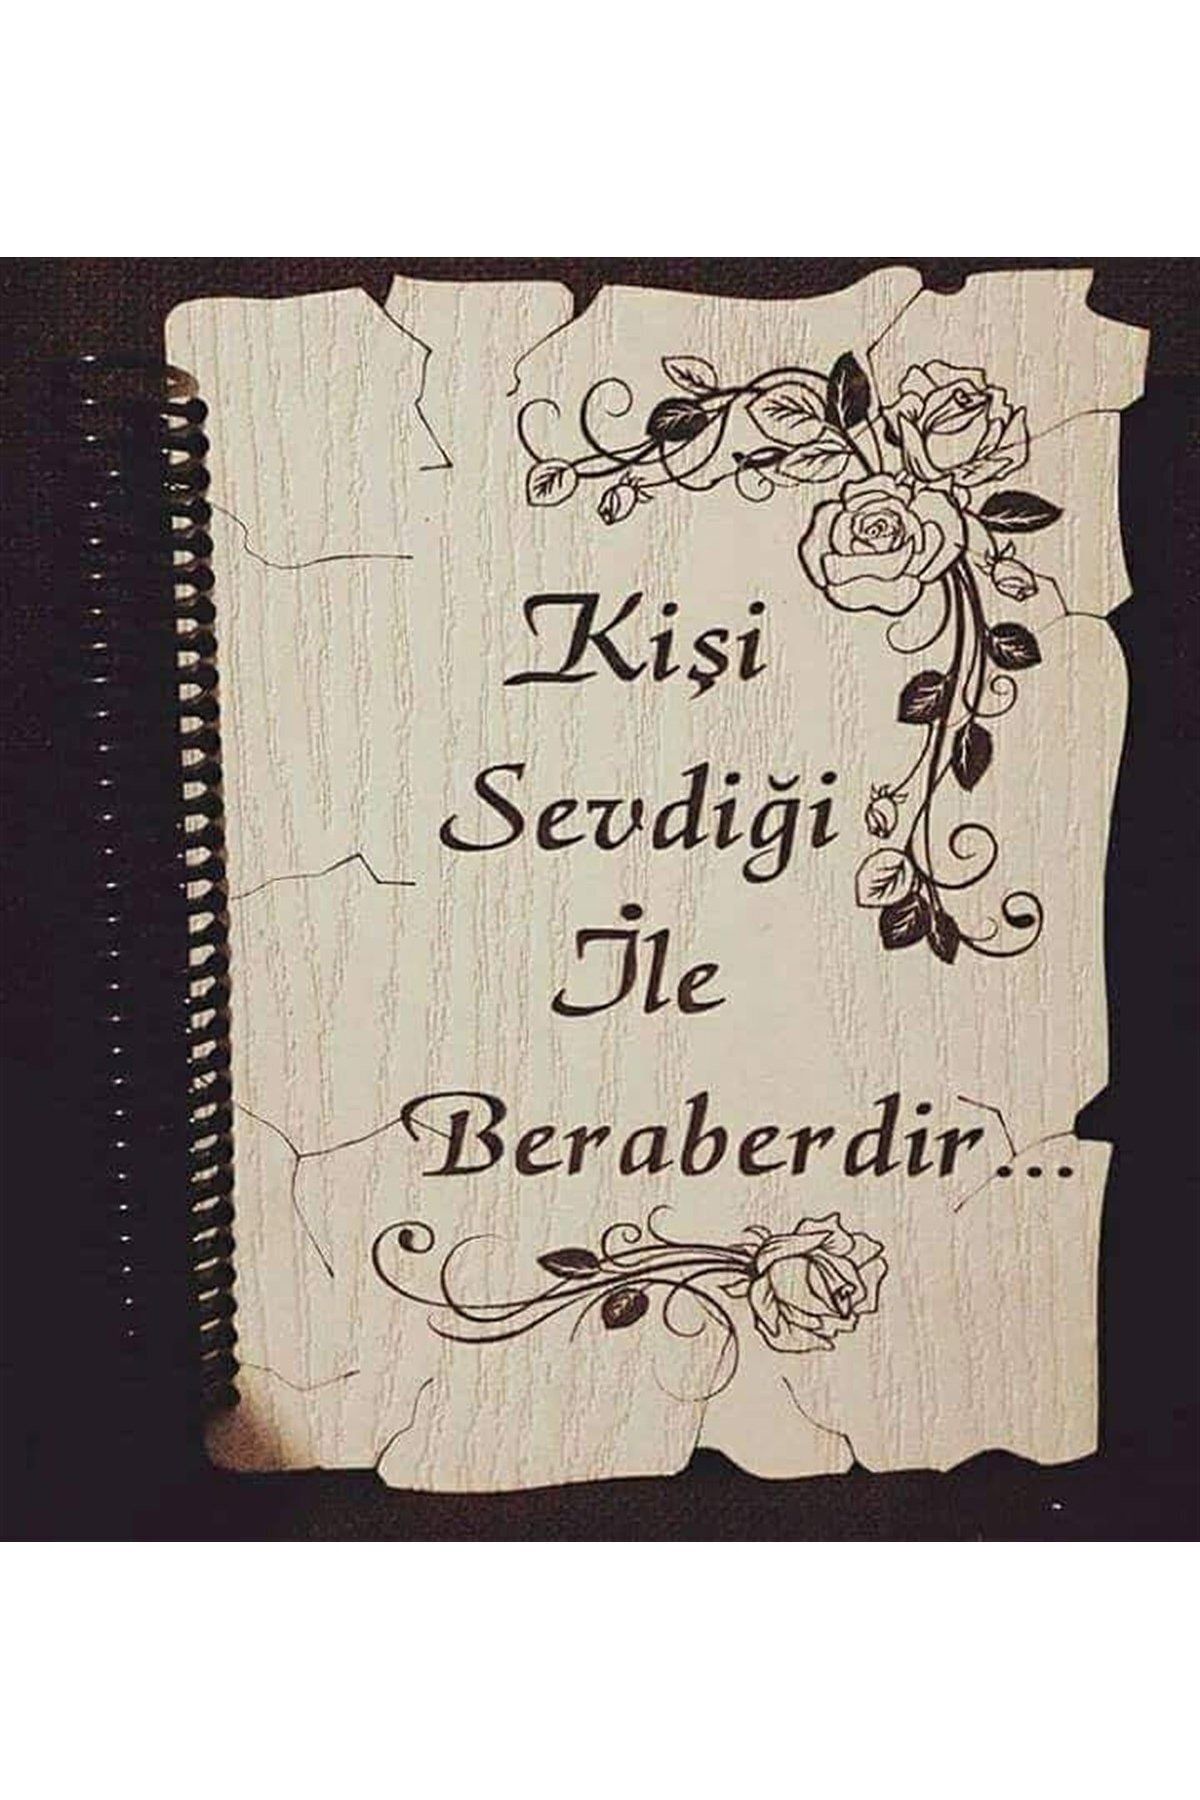 Kişi
Sevdiği
İle
Beraberdir...